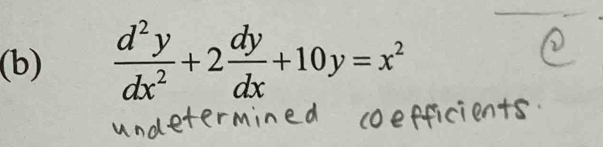 (b) d²y/dx² + 2 dy/dx + 10y = x²
undetermined coefficients.